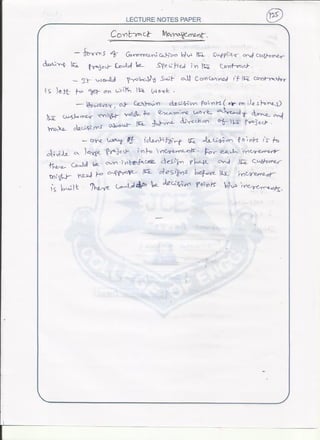 LECTURE NOTES PAPER
125
Contract Management.
- Forms of Communication b/w the Supplier and customer
during the Project Could be Specified in the Contract.
- It would probably Suit all Concerned if the contractor
is left to get on with the work.
- However, at Certain decision Points (or milestones)
the customer might wish to examine work already done and
make decisions about the future direction of the Project.
- one way of identifying the decision Points is to
divide a large Project into increments. For each increment
there Could be an interface design phase and the Customer
might need to approve the designs before the increment
is built There Could be decision Points b/w increments.